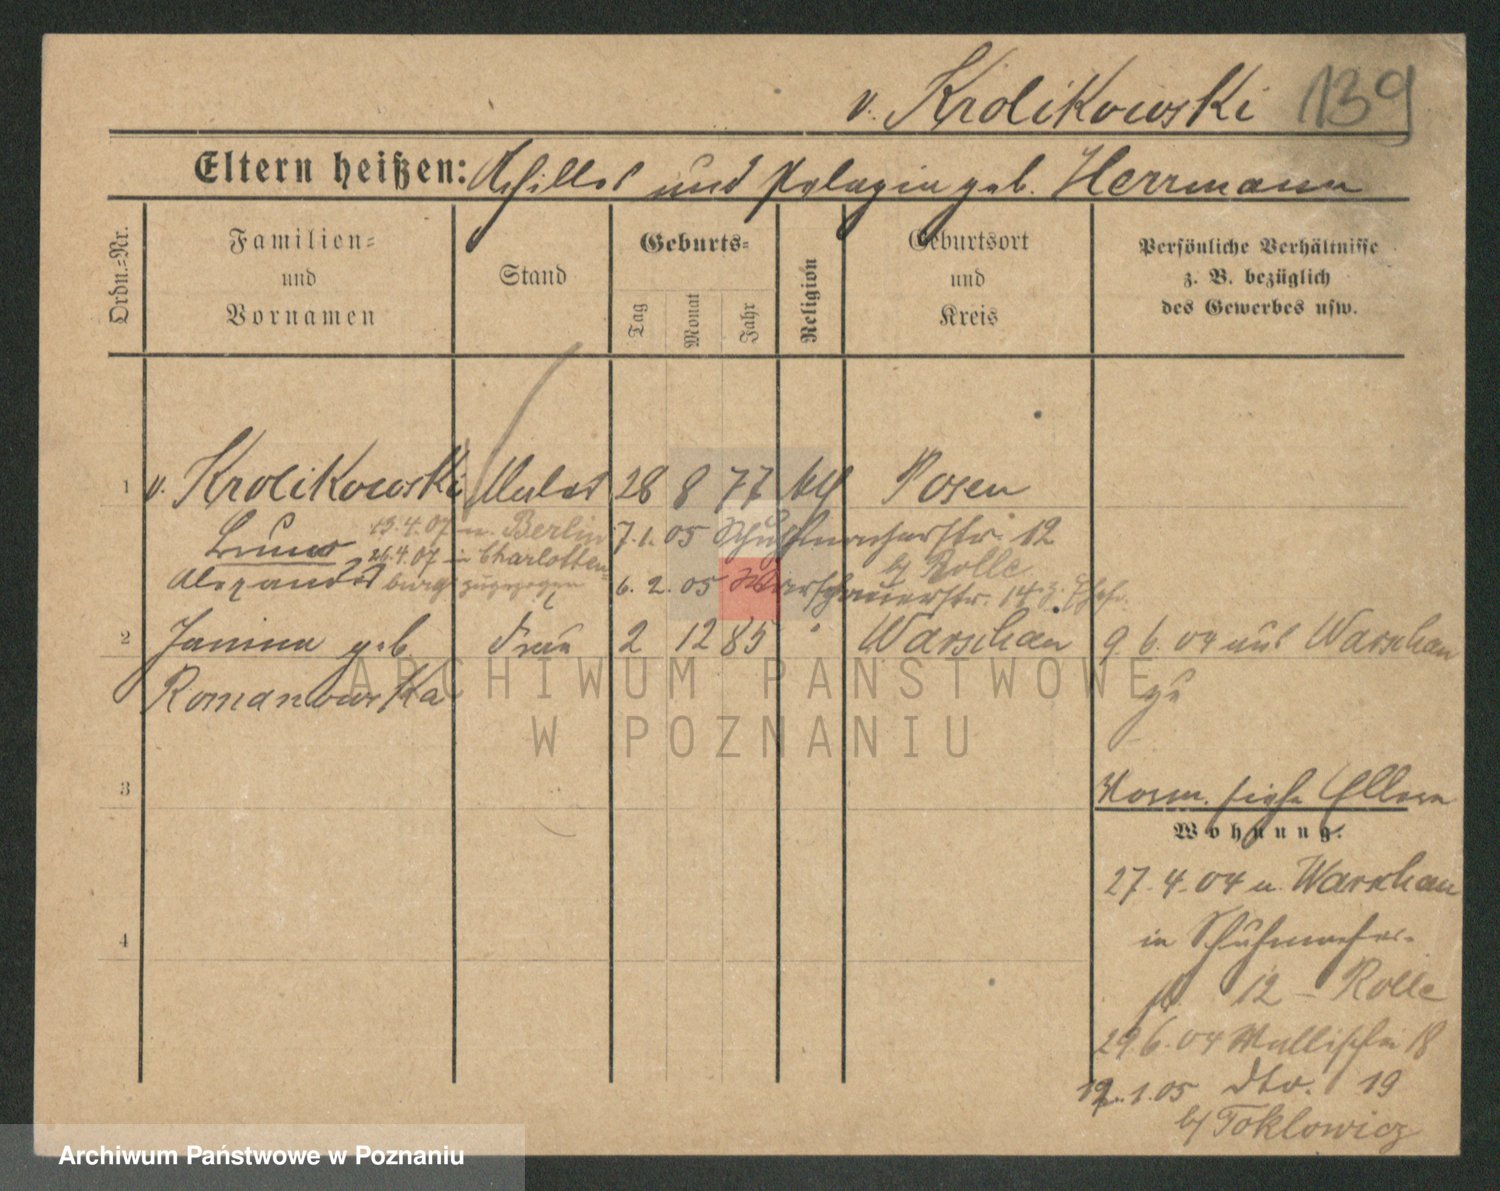 v. Krolikowski 139
Eltern heißen: Achilles und Pelagia geb. Herrmann
Ordn.-Nr.
Familien-
und
Vornamen
Stand
Geburts-
Tag
Monat
Jahr
Religion
Geburtsort
und
Kreis
Persönliche Verhältnisse
z. B. bezüglich
des Gewerbes usw.
1 v. Krolikowski Maler 28 8 77 kth Posen
Bruno 13.4.07 n. Berlin 7.1.05 Schuhmacherstr. 12
26.4.07 in Charlotten- b/ Rolle
Alexander burg zugezogen 6.2.05 Warschauerstr. 14
2 Janina geb. Frau 2 12 85 " Warschau 9.6.04 aus Warschau
Romanowska zu
3
Vorm. siehe Eltern
Wohnung:
27.4.04 n. Warschau
in Schuhmacher-
4
str 12 - Rolle
29.6.04 Wallischei 18
12.1.05 dto. 19
b/ Toklowicz
ARCHIWUM PAŃSTWOWE
W POZNANIU
Archiwum Państwowe w Poznaniu